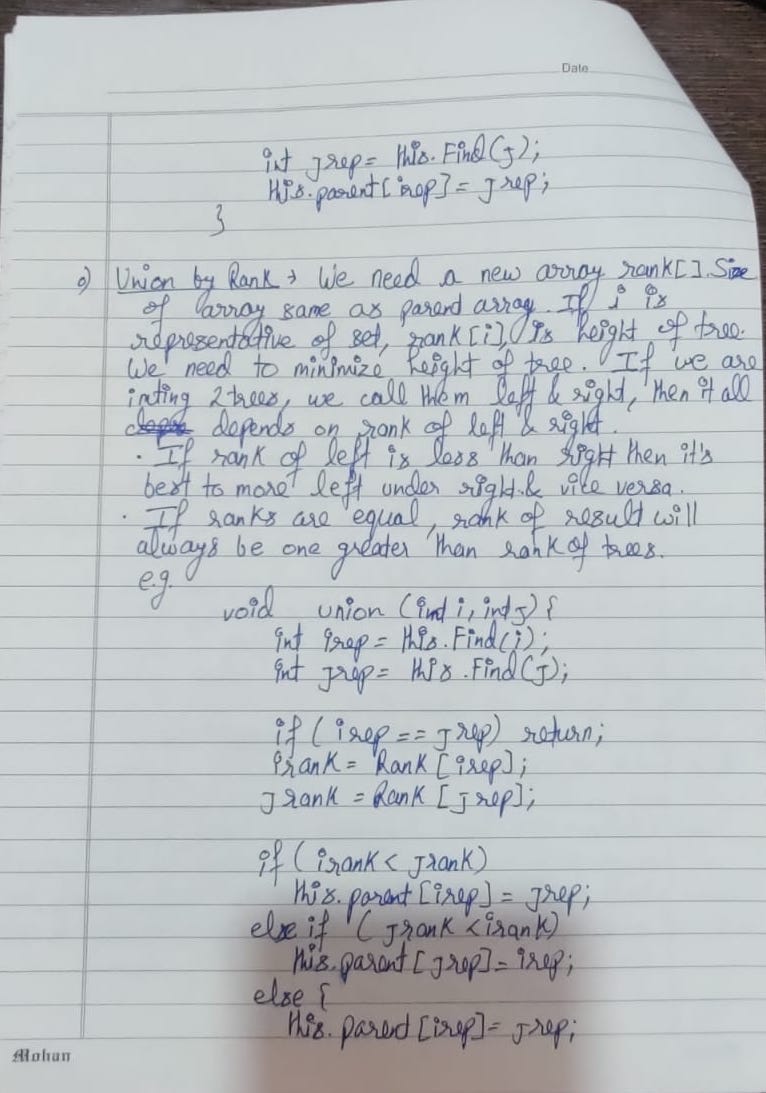 Date
int jrep = this.Find(j);
this.parent[irep] = jrep;
}
o) Union by Rank → We need a new array rank[]. Size
of array same as parent array. If i is
representative of set, rank[i] is height of tree.
We need to minimize height of tree. If we are
initing 2 trees, we call them left & right, then it all
depends on rank of left & right.
· If rank of left is less than right then it's
best to more left under right & vice versa.
· If ranks are equal, rank of result will
always be one greater than rank of trees.
e.g.
void union (int i, int j) {
int irep = this.Find(i);
int jrep = this.Find(j);
if (irep == jrep) return;
irank = Rank [irep];
jrank = Rank [jrep];
if (irank < jrank)
this.parent [irep] = jrep;
else if (jrank < irank)
this.parent [jrep] = irep;
else {
this.parent [irep] = jrep;
Mohan